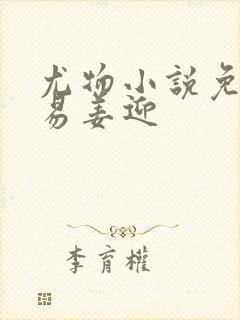 尤物小說免
易姜迎
李育權